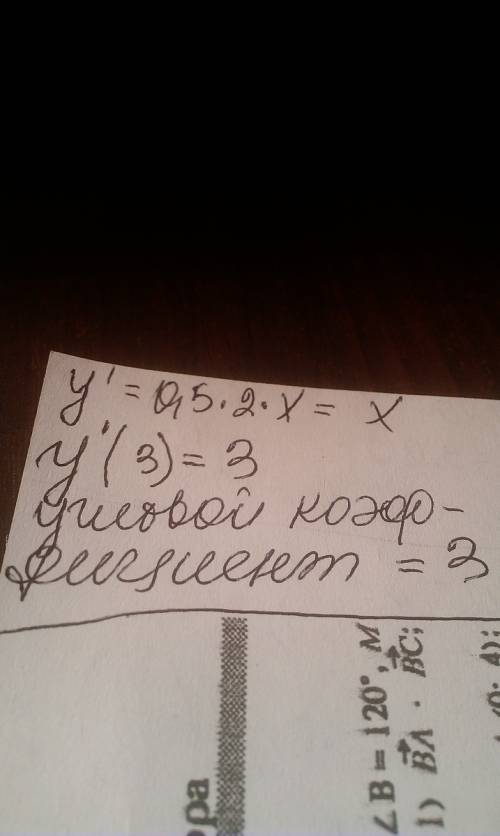 y' = 0,5 · 2 · x = x
y'(3) = 3
угловой коэф-
фициент = 3
∠B = 120°, M
1) BA · BC;
(0; 4);
ра